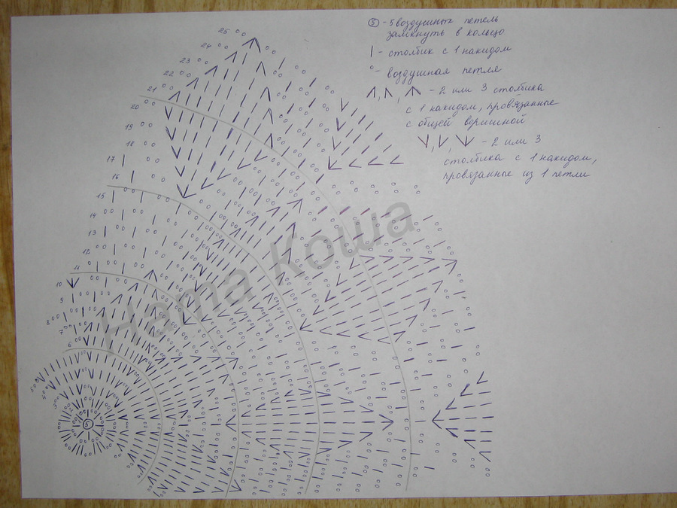 ⑤ - 5 воздушных петель
замкнуть в кольцо
| - столбик с 1 накидом
° - воздушная петля
- 2 или 3 столбика
с 1 накидом, провязанные
с общей вершиной
- 2 или 3
столбика с 1 накидом,
провязанное из 1 петли
25
24
23
22
21
20
19
18
17
16
15
14
13
12
11
10
9
8
5
Мата Коша